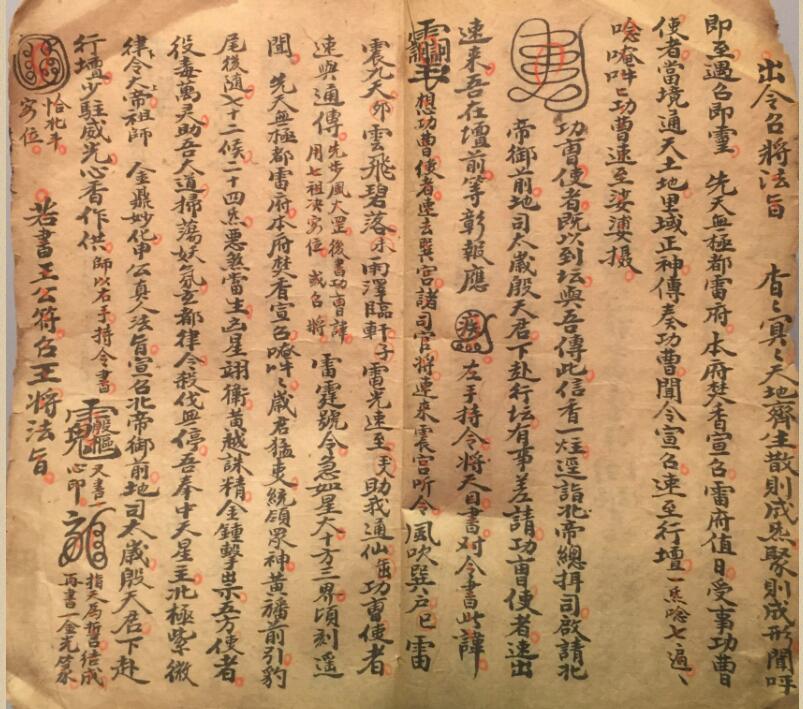 出令召將法旨　杳々冥々天地齊生散則成炁聚則成形聞呼
即至遇召即靈　先天無極都雷府本府焚香宣召雷府值日受事功曹
使者當境通天土地里域正神傳奏功曹聞令宣召速至行壇一炁唸七遍、
唸唵吽匕功曹速至娑婆攝
功曹使者既以到坛與吾傳此信香一炷逕詣北帝總押司啟請北
帝御前地司太歲殷天君下赴行坛有事差請功曹使者速出
速來吾在壇前等彰報應　左手持令將天目書对令書此諱
想功曹使者速去巽宮諸司官將速來震宮听令　風吹巽户巳　雷
震九天卯雲飛碧落未雨澤臨軒子雷光速至助我通仙功曹使者
速與通傳先步風火罡後書功曹諱
用七祖决寄位　或召將　雷霆號令急如星火十方三界頃刻遥
聞　先天無極都雷府本府焚香宣召唵吽々歲君猛吏統領眾神黃旛前引豹
尾後隨七十二候二十四炁惡煞當生凶星翊衛黃越誅精金鍾擊祟五方使者
役毒萬灵助吾人道掃蕩妖氛玄都律令殺伐無停吾奉中天星主北極紫微
律令大帝祖師　金鼎妙化申公真人法旨宣召北帝御前地司太歲殷天君下赴
行壇少駐威光心香作供師以右手持令書　又書一
心印　指天為誓召結成
再書一金光篆
寄位　若書王公符召王將法旨